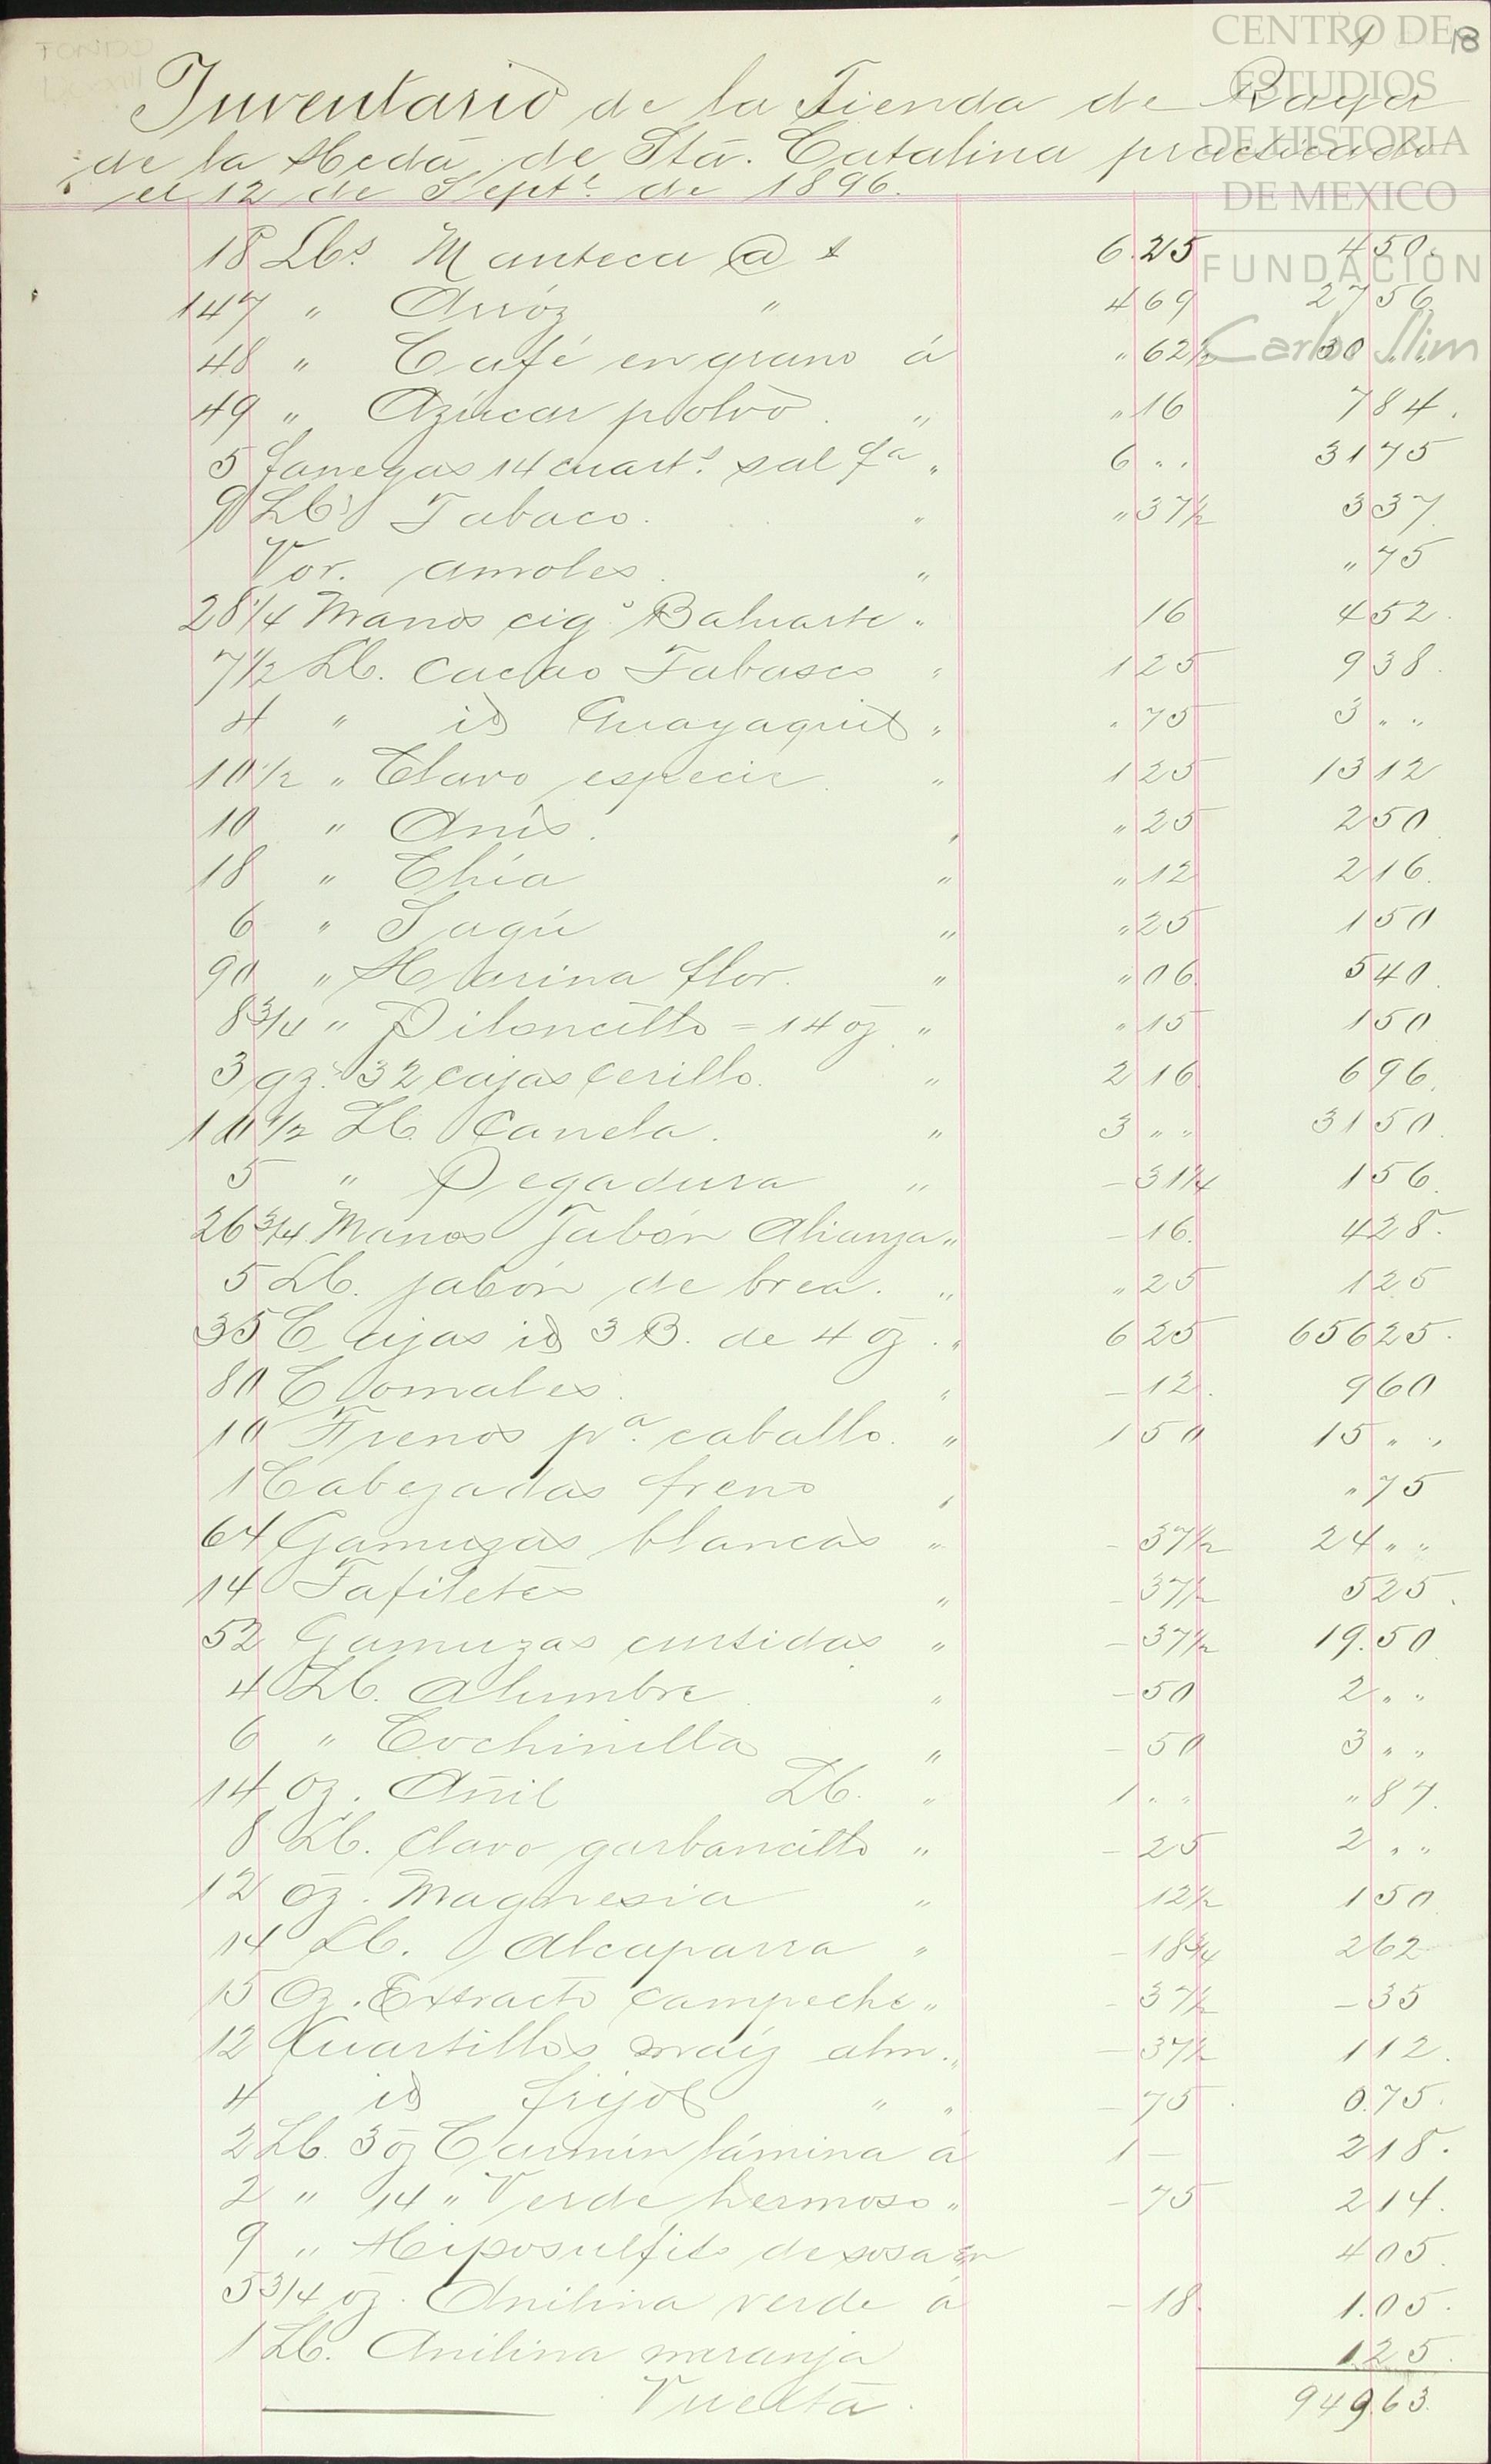 CENTRO DE
ESTUDIOS
DE HISTORIA
DE MEXICO
FUNDACIÓN
Carlos Slim
18
Inventario de la Tienda de Raya
de la Hcda. de Sta. Catalina practicado
el 12 de Sept.e de 1896.
18 Lbs. Manteca @ á 6.25 4 50.
147 " Arróz " 4 69 27 56
48 " Café en grano á " 62½ 30 " "
49 " Azúcar polvo " " 16 7 84.
5 fanegas 14 cuart.s sal fa " 6 " " 31 75
9 Lbs Tabaco. " " 37½ 3 37.
Vor. amoles. " " 75
28¼ Manos cig.s Baluarte " 16 4 52.
7½ Lb. Cacao Tabasco " 1 25 9 38.
4 " id Guayaquil " " 75 3 " "
10½ " Clavo especie. " 1 25 13 12
10 " Anís. " " 25 2 50
18 " Chía " " 12 2 16.
6 " Sagú " " 25 1 50
90 " Harina flor. " " 06. 5 40.
8¾ " Piloncillo = 14 oz. " " 15 1 50
3 gz. 32 cajas cerillo. " 2 16 6 96.
10½ Lb Canela. " 3 " " 31 50.
5 " Pegadura " – 31¼ 1 56.
26¾ Manos Jabón Alianza " – 16. 4 28.
5 Lb. jabón de brea. " " 25 1 25
35 Cajas id 3 B. de 4 oz. " 6 25 656 25.
80 Comales. " – 12. 9 60
10 Frenos pa. caballo. " 1 50 15 " "
1 Cabezadas freno " " 75
64 Gamuzas blancas " – 37½ 24 " "
14 Tafiletes " – 37½ 5 25.
52 Gamuzas curtidas " – 37½ 19.50
4 Lb. Alumbre " – 50 2 " "
6 " Cochinilla " – 50 3 " "
14 oz. Añil Lb. " 1 " " " 87.
8 Lb. Clavo garbancillo " – 25 2 " "
12 oz. Magnesia " 12½ 1 50
14 Lb. Alcaparra " – 18¾ 2 62
15 Oz. Extracto Campeche " – 37½ – 35
12 Cuartillos maíz alm. " – 37½ 1 12.
4 id frijol " " – 75 0.75.
2 Lb. 3 oz Carmín lámina á 1 – 2 18.
2 " 14 " Verde hermoso " – 75 2 14.
9 " Hiposulfito de sosa en 4 05.
5¾ oz. Anilina verde á – 18. 1.05.
1 Lb. Anilina naranja 1 25.
Vuelta. 949.63.